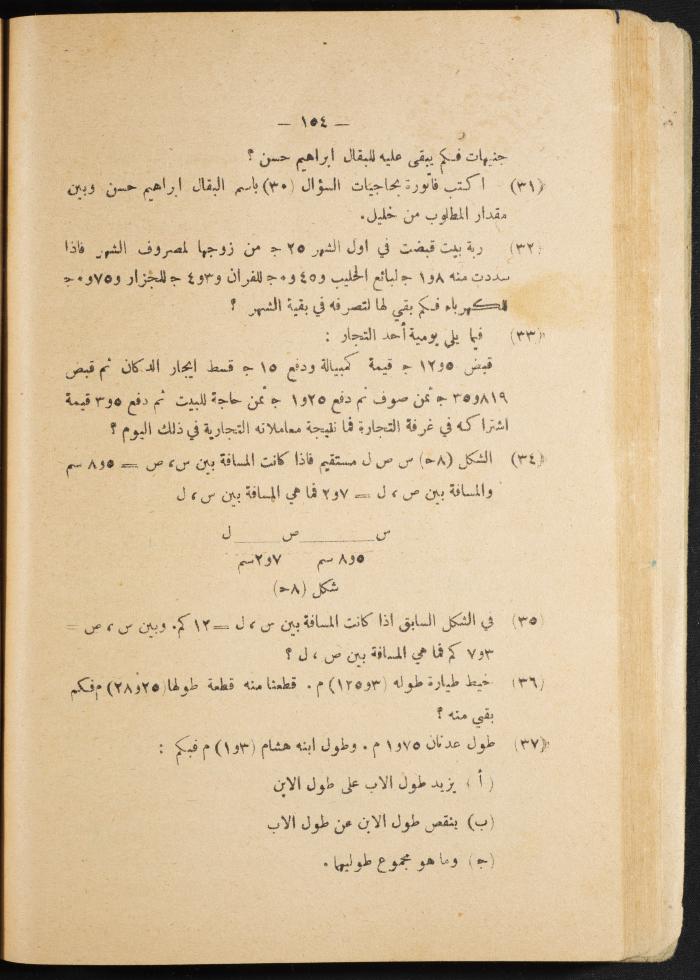 — ١٥٤ —
جنيهات فكم يبقى عليه للبقال ابراهيم حسن ؟
(٣١) اكتب فاتورة بحاجيات السؤال (٣٠) باسم البقال ابراهيم حسن وبين
مقدار المطلوب من خليل.
(٣٢) ربة بيت قبضت في اول الشهر ٢٥ ج من زوجها لمصروف الشهر فاذا
سددت منه ٨و١ ج لبائع الحليب و٤٥و٠ ج للفران و٣و٤ ج للجزار و٧٥و٠ ج
للكهرباء فكم بقي لها لتصرفه في بقية الشهر ؟
(٣٣) فيما يلي يومية أحد التجار :
قبض ٥و١٢ ج قيمة كمبيالة ودفع ١٥ ج قسط ايجار الدكان ثم قبض
٨١٩و٣٥ ج ثمن صوف ثم دفع ٢٥و١ ج ثمن حاجة للبيت ثم دفع ٥و٣ قيمة
اشتراكه في غرفة التجارة فما نتيجة معاملاته التجارية في ذلك اليوم ؟
(٣٤) الشكل (٨ح) س ص ل مستقيم فاذا كانت المسافة بين س، ص = ٥و٨ سم
والمسافة بين ص ، ل = ٧و٢ فما هي المسافة بين س ، ل
س ـــــــ ص ــــ ل
٥و٨ سم ٧و٢سم
شكل (٨ح)
(٣٥) في الشكل السابق اذا كانت المسافة بين س ، ل = ١٢ كم. وبين س ، ص =
٣و٧ كم فما هي المسافة بين ص ، ل ؟
(٣٦) خيط طيارة طوله (٣و١٢٥) م . قطعنا منه قطعة طولها (٢٥و٢٨) م فكم
بقي منه ؟
(٣٧) طول عدنان ٧٥و١ م . وطول ابنه هشام (٣و١) م فبكم :
(أ) يزيد طول الاب على طول الابن
(ب) ينقص طول الابن عن طول الاب
(ج) وما هو مجموع طوليهما .